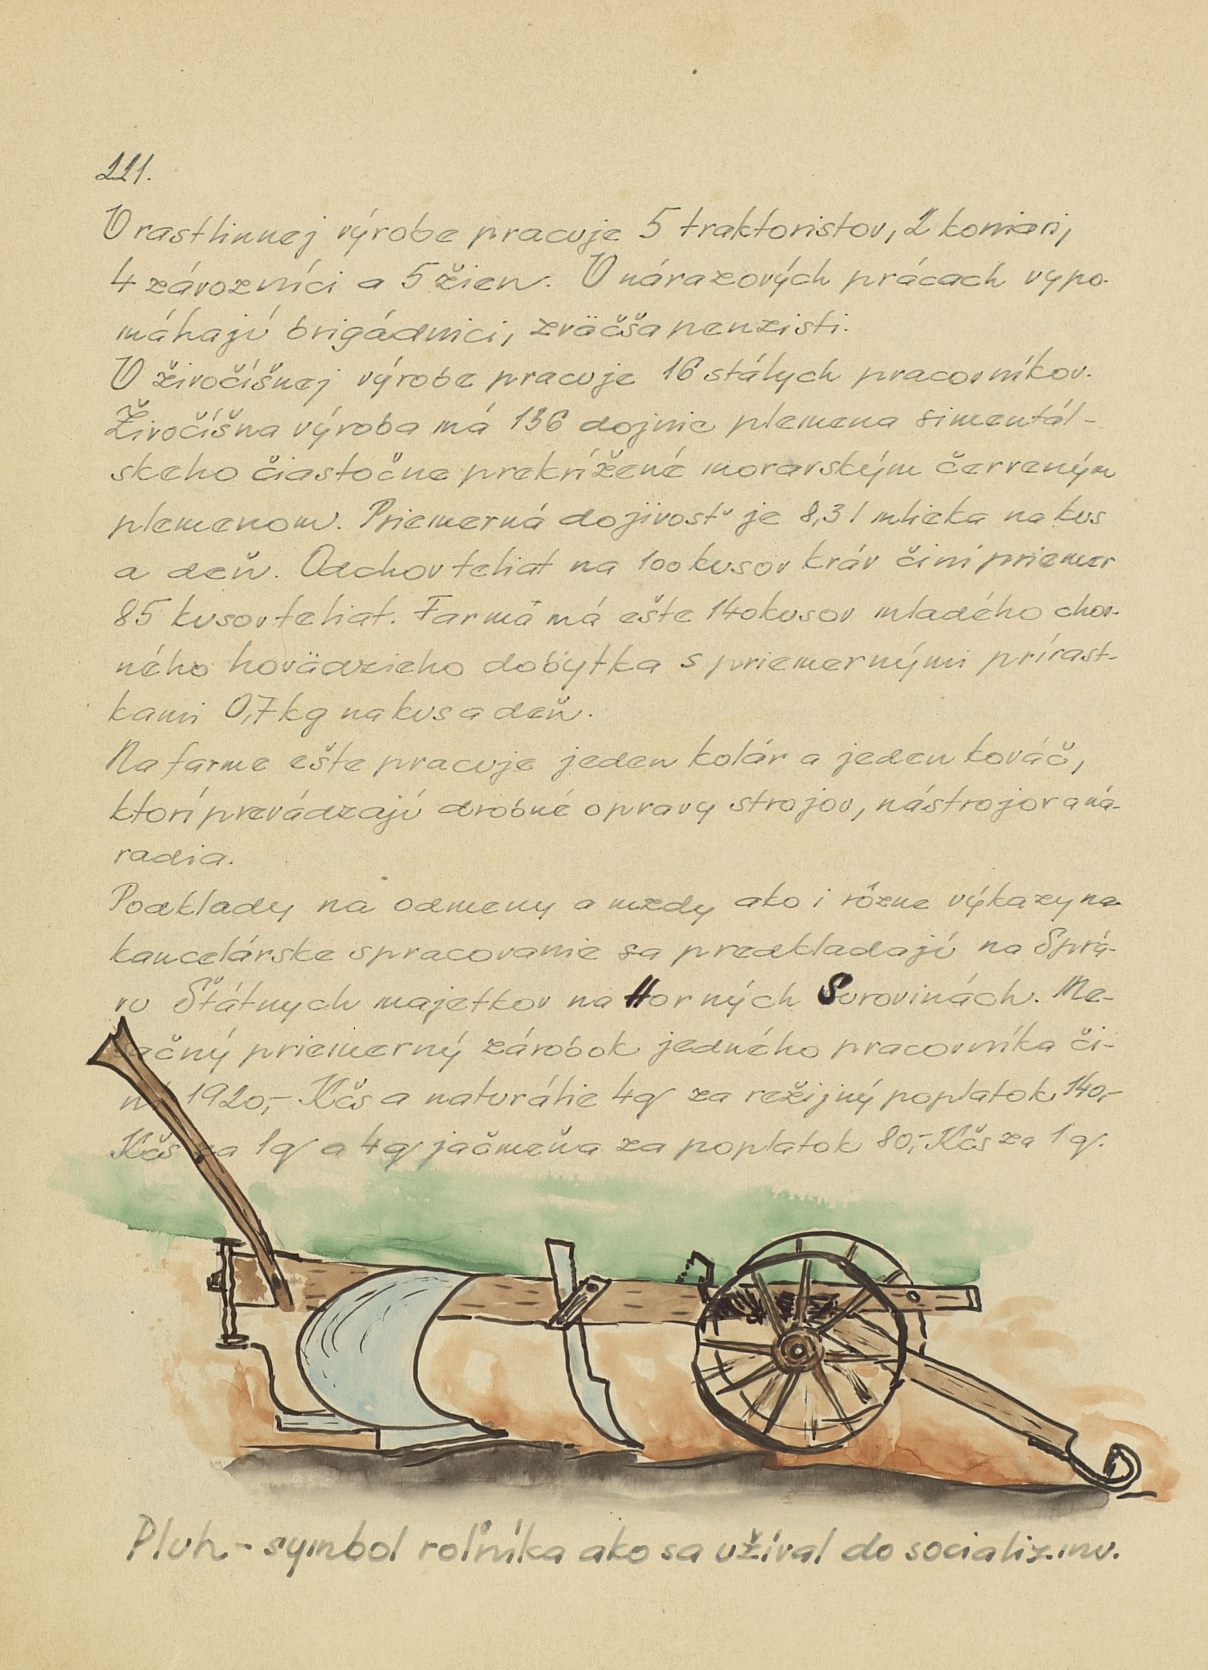 221.
V rastlinnej výrobe pracuje 5 traktoristov, 2 koniari,
4 závozníci a 5 žien. V nárazových prácach vypo-
máhajú brigádnici, zväčša penzisti.
V živočíšnej výrobe pracuje 16 stálych pracovníkov.
Živočíšna výroba má 136 dojníc plemena simentál-
skeho čiastočne prekrížené moravským červeným
plemenom. Priemerná dojivosť je 8,3 l mlieka na kus
a deň. Odchov teliat na 100 kusov kráv činí priemer
85 kusov teliat. Farma má ešte 140 kusov mladého chov-
ného hovädzieho dobytka s priemernými prírast-
kami 0,7 kg na kus a deň.
Na farme ešte pracuje jeden kolár a jeden kováč,
ktorí prevádzajú drobné opravy strojov, nástrojov a ná-
radia.
Podklady na odmeny a mzdy ako i rôzne výkazy na
kancelárske spracovanie sa predkladajú na Sprá-
vu Štátnych majetkov na Horných Surovinách. Me-
začný priemerný zárobok jedného pracovníka či-
ní 1920,- Kčs a naturálie 4q za režijný poplatok 140,-
Kčs za 1q a 4q jačmeňa za poplatok 80,- Kčs za 1q.
Pluh - symbol roľníka ako sa užíval do socializmu.